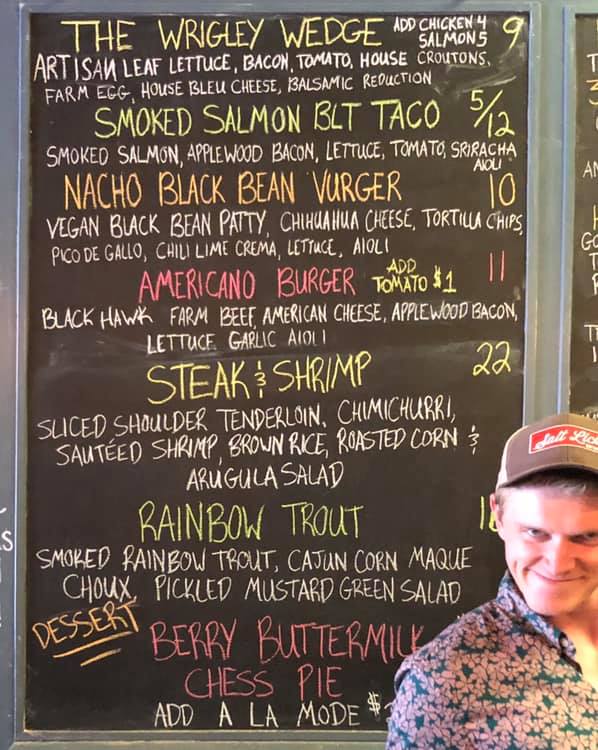 THE WRIGLEY WEDGE ADD CHICKEN 4 9
SALMON 5
ARTISAN LEAF LETTUCE, BACON, TOMATO, HOUSE CROUTONS,
FARM EGG, HOUSE BLEU CHEESE, BALSAMIC REDUCTION
SMOKED SALMON BLT TACO 5/12
SMOKED SALMON, APPLEWOOD BACON, LETTUCE, TOMATO, SRIRACHA
AIOLI
NACHO BLACK BEAN VURGER 10
VEGAN BLACK BEAN PATTY, CHIHUAHUA CHEESE, TORTILLA CHIPS,
PICO DE GALLO, CHILI LIME CREMA, LETTUCE, AIOLI
AMERICANO BURGER ADD TOMATO $1 11
BLACK HAWK FARM BEEF, AMERICAN CHEESE, APPLEWOOD BACON,
LETTUCE, GARLIC AIOLI
STEAK & SHRIMP 22
SLICED SHOULDER TENDERLOIN, CHIMICHURRI,
SAUTÉED SHRIMP, BROWN RICE, ROASTED CORN &
ARUGULA SALAD
RAINBOW TROUT
SMOKED RAINBOW TROUT, CAJUN CORN MAQUE
CHOUX, PICKLED MUSTARD GREEN SALAD
DESSERT
BERRY BUTTERMILK
CHESS PIE
ADD A LA MODE $
Salt Lick